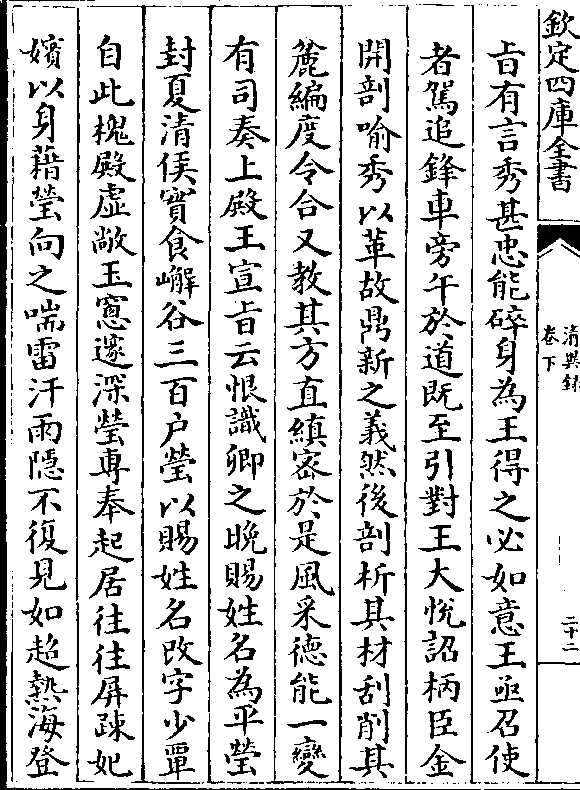 欽定四庫全書
清異録
卷下
二十二
旨有言秀甚忠能碎身為王得之必如意王亟召使
者駕追鋒車旁午於道既至引對王大悅詔柄臣金
開剖喻秀以革故鼎新之義然後剖析其材刮削其
麄編度令合又教其方直縝密於是風采德能一變
有司奏上殿王宣旨云恨識卿之晚賜姓名為平瑩
封夏清侯實食嶰谷三百户瑩以賜姓名改字少覃
自此槐殿虛敞玉窻邃深瑩専奉起居往往屏疎妃
嬪以身藉瑩向之喘雷汗雨隠不復見如超熱海登